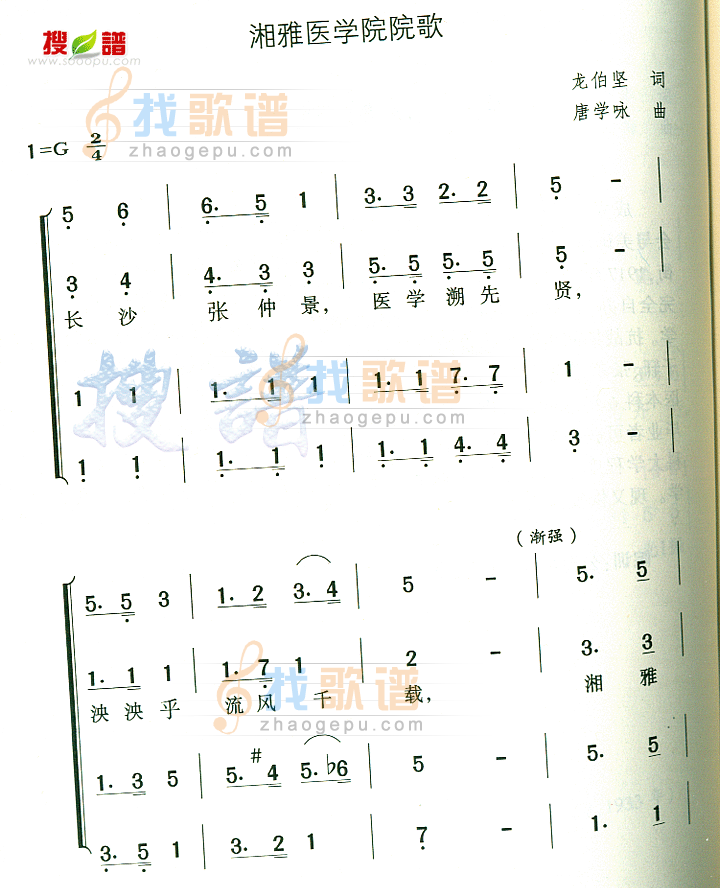 湘雅医学院院歌
搜 譜
www.sooopu.com
龙伯坚 词
唐学咏 曲
找歌谱
zhaogepu.com
1=G 2/4
5 6 | 6. 5 1 | 3. 3 2. 2 | 5 - |
3 4 | 4. 3 3 | 5. 5 5. 5 | 5 - |
长 沙 张 仲 景, 医 学 溯 先 贤,
搜譜
找歌谱
zhaogepu.com
1 1 | 1. 1 1 | 1. 1 7. 7 | 1 - |
1 1 | 1. 1 1 | 1. 1 4. 4 | 3 - |
(渐强)
5. 5 3 | 1. 2 3. 4 | 5 - | 5. 5 |
1. 1 1 | 1. 7 1 | 2 - | 3. 3 |
泱 泱 乎 流 风 千 载, 湘 雅
找歌谱
zhaogepu.com
1. 3 5 | 5. #4 5. ♭6 | 5 - | 5. 5 |
3. 5 1 | 3. 2 1 | 7 - | 1. 1 |